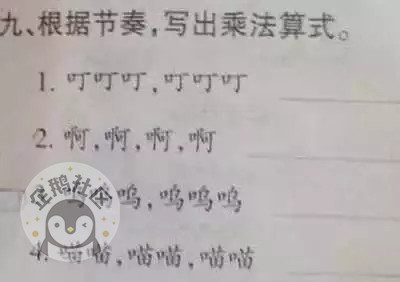 九、根据节奏,写出乘法算式。
1. 叮叮叮,叮叮叮
2. 啊,啊,啊,啊
企鹅社区
呜呜,呜呜呜
4. 喵喵,喵喵,喵喵